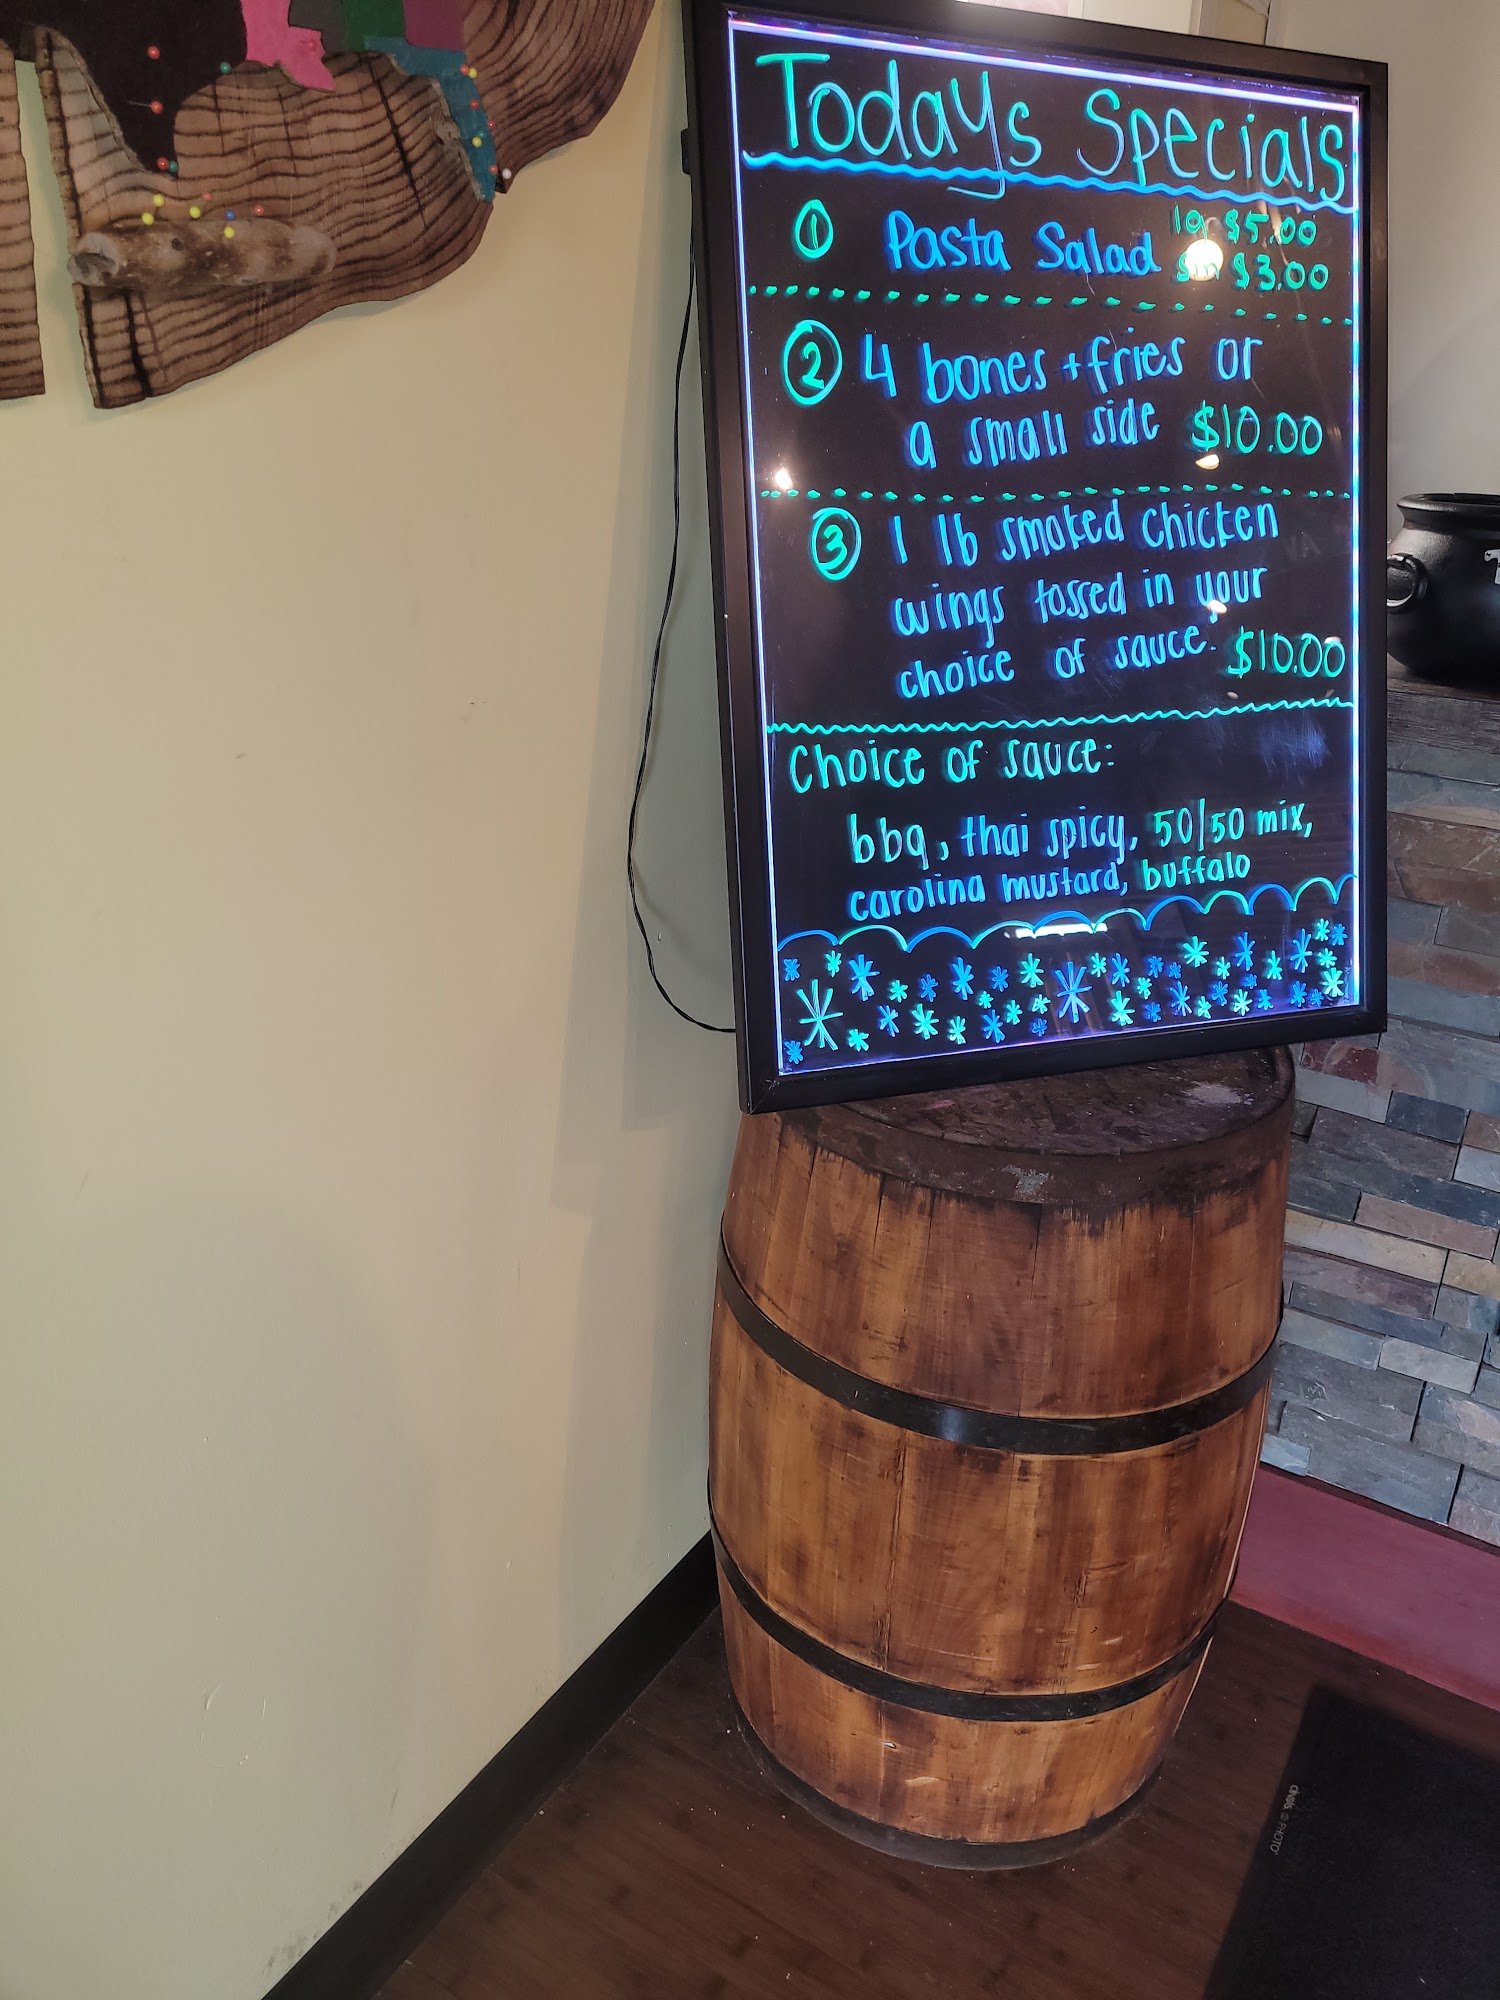 Todays Specials
1 Pasta Salad lg $5.00
sm $3.00
2 4 bones + fries or
a small side $10.00
3 1 lb smoked chicken
wings tossed in your
choice of sauce. $10.00
Choice of sauce:
bbq, thai spicy, 50/50 mix,
carolina mustard, buffalo